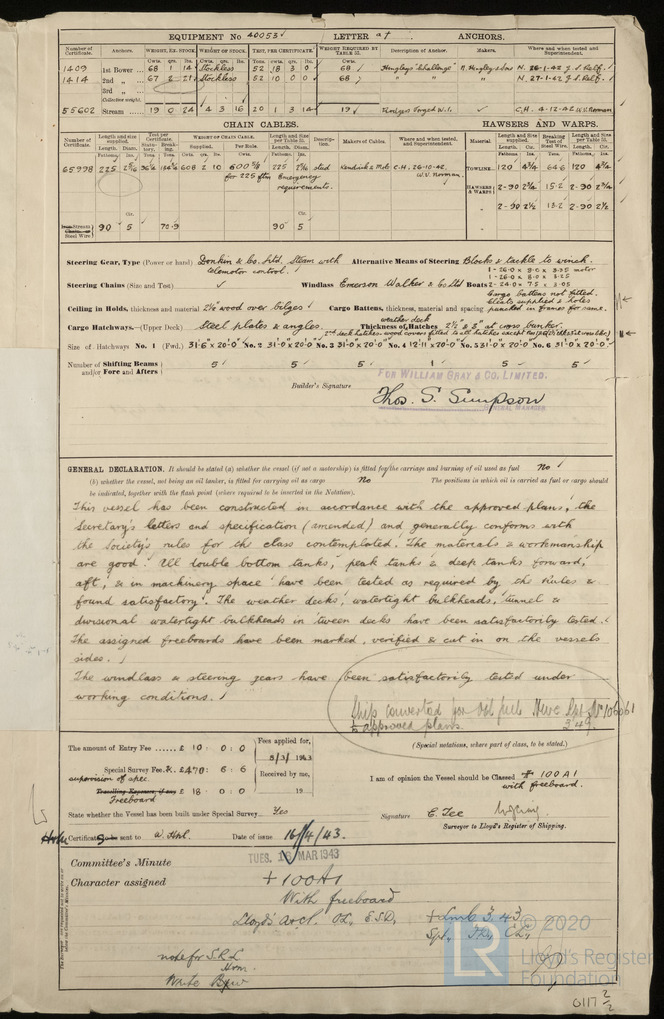 EQUIPMENT No 40053 LETTER a† ANCHORS.
Number of Certificate. Anchors. WEIGHT, EX. STOCK WEIGHT OF STOCK. TEST, PER CERTIFICATE WEIGHT REQUIRED BY TABLE 53. Description of Anchor. Makers. Where and when tested and Superintendent.
Cwts. qrs. lbs. Cwts. qrs. lbs. Tons. cwts. qrs. lbs. Cwts.
1409 1st Bower 68 1 14 Stockless 52 18 3 0 68 Hingley's "Challenge" N. Hingley & Sons N. 26-1-42 J. S. Relf.
1414 2nd " 67 2 21 Stockless 52 10 0 0 68 " " " N. 27-1-42 J. S. Relf.
3rd "
Collective weight.
55602 Stream 19 0 24 4 3 16 20 1 3 14 19 C.H. 4-12-42 W.V. Norman
CHAIN CABLES. HAWSERS AND WARPS.
Number of Certificate. Length and size supplied. Test per Certificate. WEIGHT OF CHAIN CABLE. Length and size per Table 53. Description. Makers of Cables. Where and when tested, and Superintendent. Material Length and Size supplied. Breaking Test of Steel Wire. Length and Size per Table 53.
Length. Diam. Statutory. Breaking. Supplied. Per Rule. Length. Diam.
65998 225 2 5/16 608 2 10 225 2 5/16 stud Kendrick & Mole C.H. 26-10-42. W.V. Norman.
for 225 ftm Emergency requirements.
TOWLINE 120 4 3/4 64.6 120 4 3/4
HAWSERS & WARPS 2-90 2 3/4 15.2 2-90 2 3/4
" 2-90 2 1/2 13.2 2-90 2 1/2
Steel Wire. 90 5 70.9 90 5
Steering Gear, Type (Power or hand) Donkin & Co. Ltd. Steam with telemotor control. Alternative Means of Steering Blocks & tackle to winch.
Steering Chains (Size and Test) Windlass Emerson Walker & Co Ltd Boats 1-26.0 x 8.0 x 3.25 motor
1-26.0 x 8.0 x 3.25
2-24.0 x 7.5 x 3.05
Ceiling in Holds, thickness and material 2 1/2" wood over bilges Cargo Battens, thickness, material and spacing Cargo battens not fitted. Cleats supplied & holes punched in frames for same.
Cargo Hatchways.—(Upper Deck) Steel plates & angles. Thickness of Hatches weather deck 2 1/2 & 3" at cross bunker.
Size of Hatchways No. 1 (Fwd.) 31'6" x 20'0" No. 2 31'0 x 20'0 No. 3 31'0 x 20'0 No. 4 12'1" x 20'0" No. 5 31'0" x 20'0" No. 6 31'0" x 20'0"
Number of Shifting Beams and/or Fore and Afters 5 5 5 1 5 5
Builder's Signature FOR WILLIAM GRAY & CO. LIMITED.
Thos. S. Simpson
GENERAL MANAGER
GENERAL DECLARATION. It should be stated (a) whether the vessel (if not a motorship) is fitted for the carriage and burning of oil used as fuel No
(b) whether the vessel, not being an oil tanker, is fitted for carrying oil as cargo No The positions in which oil is carried as fuel or cargo should
be indicated, together with the flash point (where required to be inserted in the Notation).
This vessel has been constructed in accordance with the approved plans, the
Secretary's letters and specification (amended) and generally conforms with
the Society's rules for the class contemplated. The materials & workmanship
are good. All double bottom tanks, peak tanks & deep tanks forward,
aft, & in machinery space have been tested as required by the Rules &
found satisfactory. The weather decks, watertight bulkheads, tunnel &
divisional watertight bulkheads in tween decks have been satisfactorily tested.
The assigned freeboards have been marked, verified & cut in on the vessels
sides.
The windlass & steering gears have been satisfactorily tested under
working conditions.
Ship converted for Oil fuel
approved plans 3.49.
The amount of Entry Fee £ 10 : 0 : 0 Fees applied for, 1943 (Special notations, where part of class, to be stated.)
Special Survey Fee £470 : 6 : 6 Received by me,
supervision of spec.
Travelling Expenses, if any £ 18 : 0 : 0 19
Freeboard
I am of opinion the Vessel should be Classed 100 A1 with freeboard.
State whether the Vessel has been built under Special Survey Yes
Signature E. Tee
Surveyor to Lloyd's Register of Shipping.
Certificate to be sent to W. Hpl. Date of issue 16/4/43.
Committee's Minute TUES. 16 MAR 1943
Character assigned +100A1
With freeboard
Lloyd's A&CP. DF, ESD, + LMC 3.43
Spt, CL,
note for S.R.L
Write
LR © 2020
Lloyd's Register
Foundation
0117 2/2